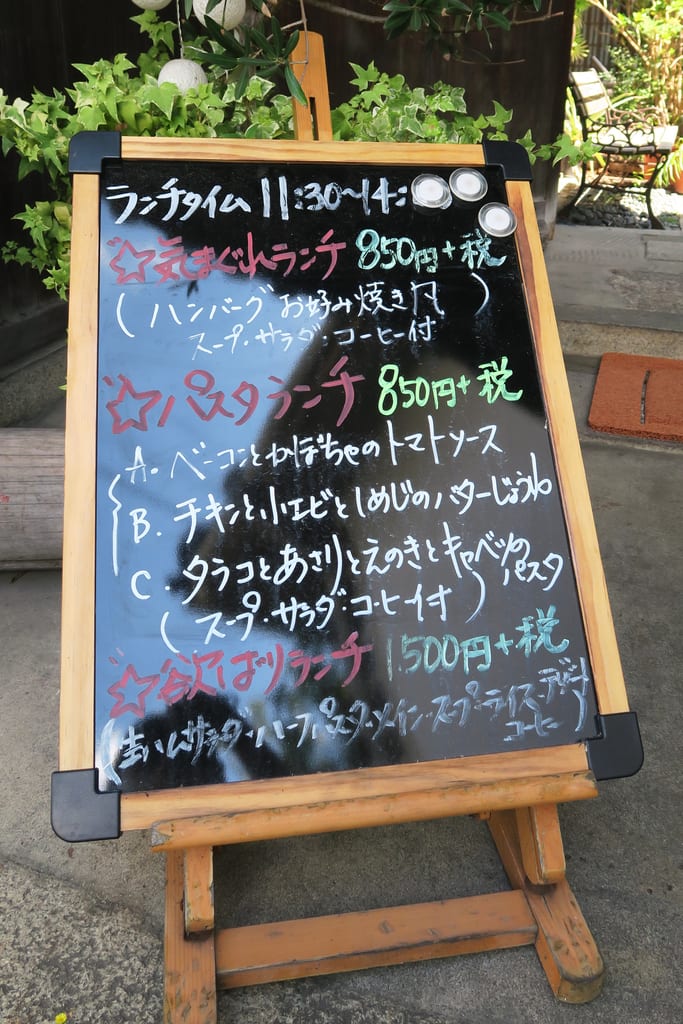 ランチタイム 11:30〜14:
☆気まぐれランチ 850円+税
(ハンバーグお好み焼き風)
スープ・サラダ・コーヒー付
☆パスタランチ 850円+税
A. ベーコンとかぼちゃのトマトソース
B. チキンと小エビとしめじのバターじょうゆ
C. タラコとあさりとえのきとキャベツのパスタ
(スープ・サラダ・コーヒー付)
☆欲ばりランチ 1.500円+税
(生ハムサラダ・ハーフパスタ・メイン・スープ・ライス・デザート
コーヒー)